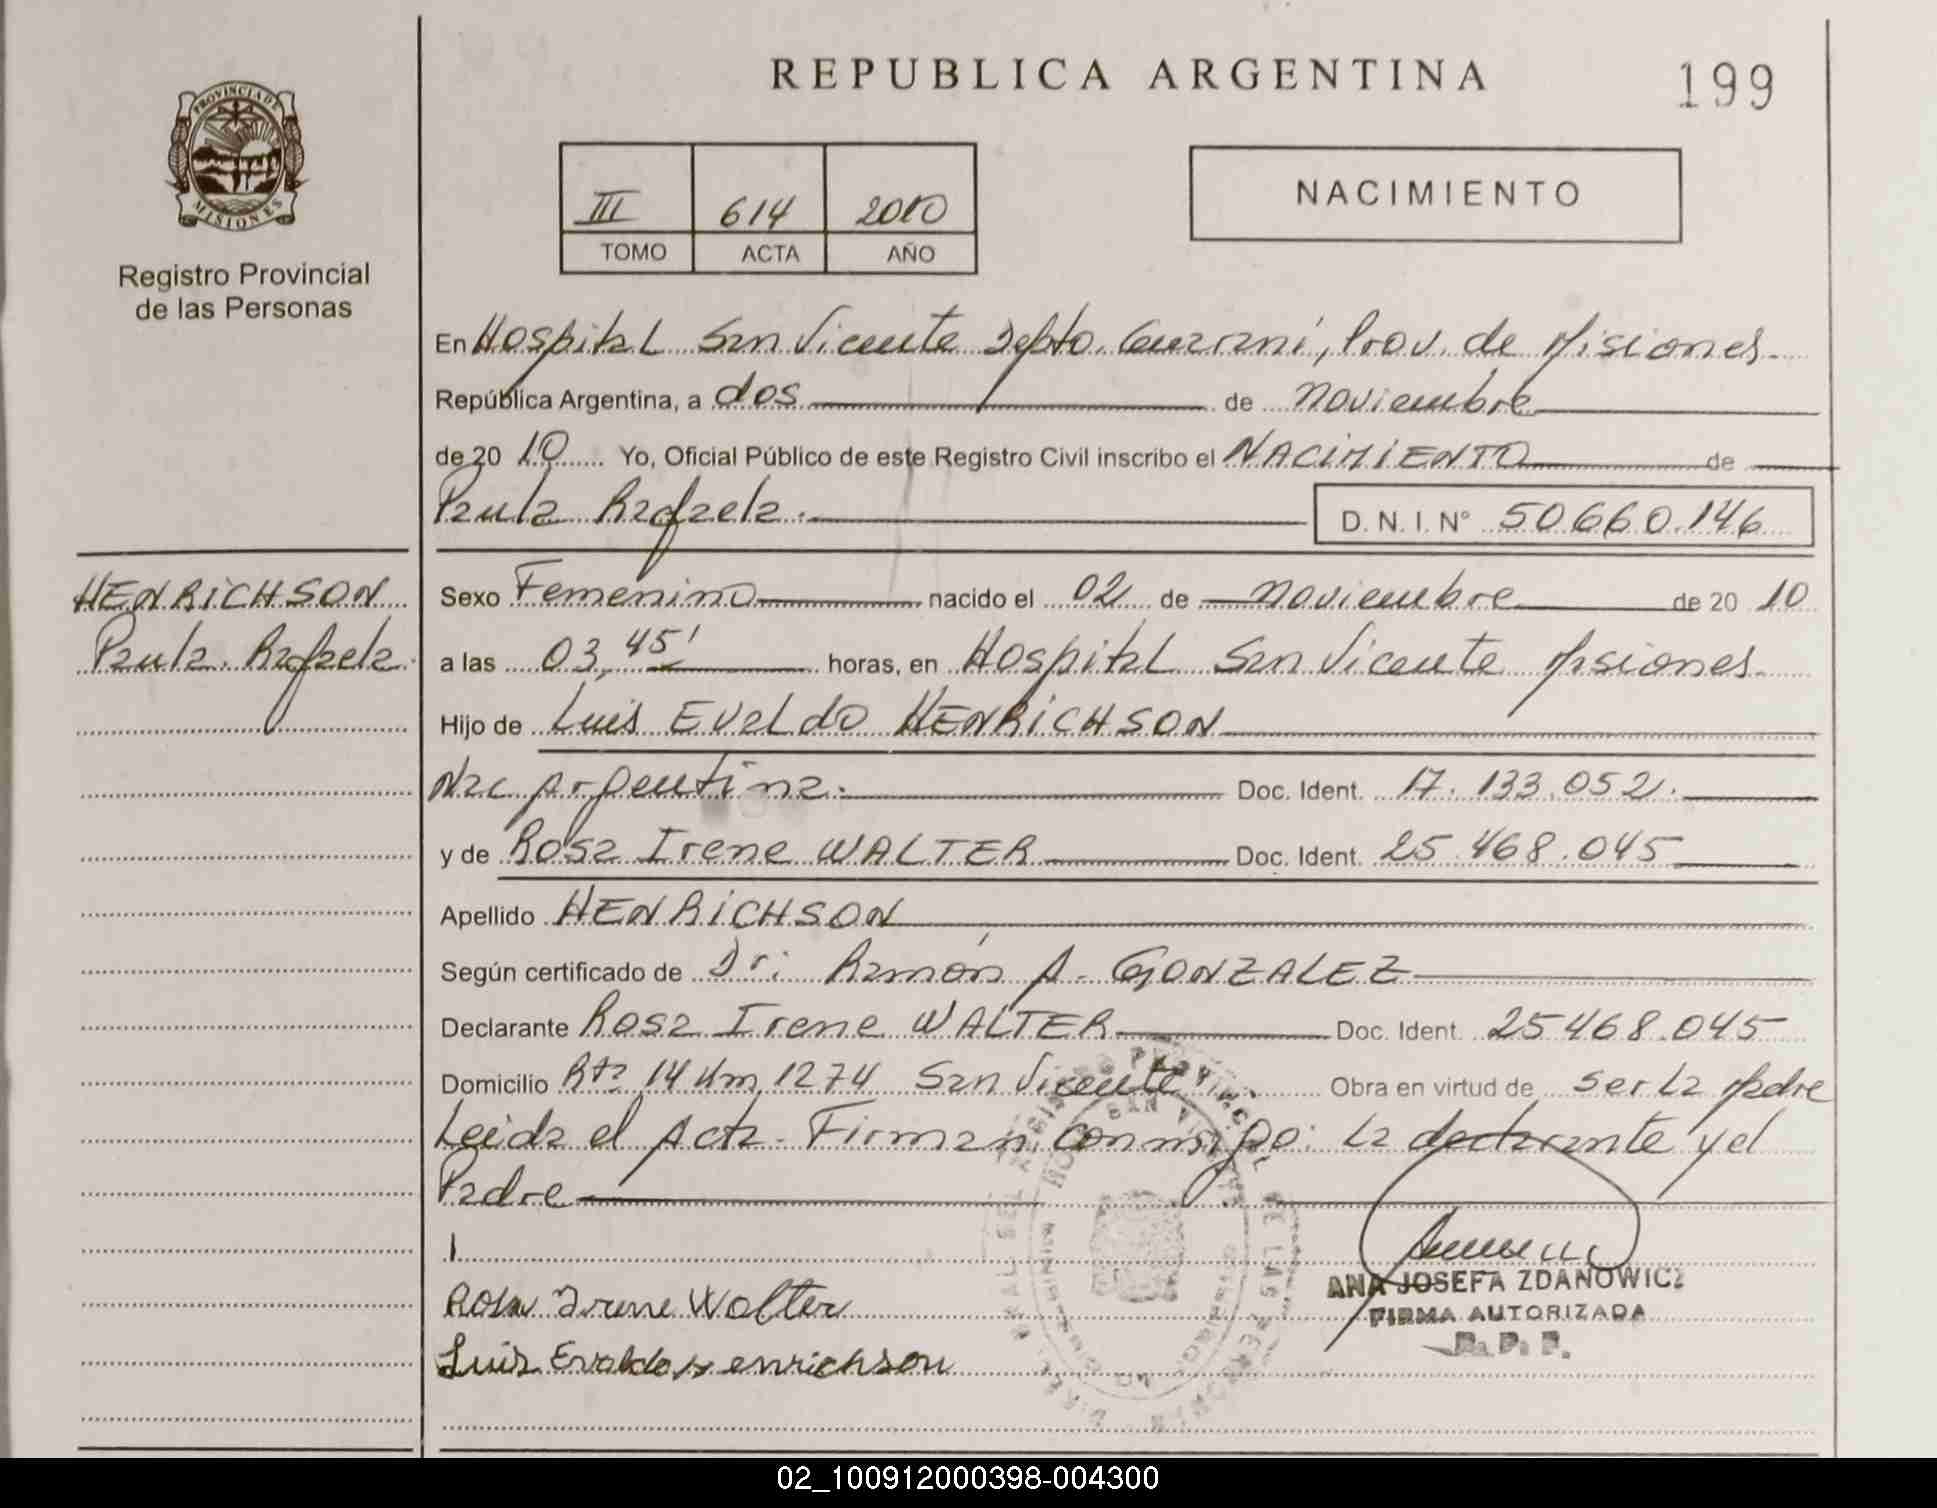 REPUBLICA ARGENTINA
199
PROVINCIA DE
MISIONES
Registro Provincial
de las Personas
III 614 2010
TOMO ACTA AÑO
NACIMIENTO
En Hospital San Vicente Depto. Guaraní, Prov. de Misiones
República Argentina, a dos de noviembre
de 20 10 Yo, Oficial Público de este Registro Civil inscribo el NACIMIENTO de
Paula Rafaela. D. N. I. N° 50.660.146
HENRICHSON
Paula Rafaela
Sexo Femenino nacido el 02 de noviembre de 20 10
a las 03,45' horas, en Hospital San Vicente Misiones
Hijo de Luis Eveldo HENRICHSON
Nac Argentina. Doc. Ident. 17.133.052.
y de Rosa Irene WALTER Doc. Ident. 25.468.045
Apellido HENRICHSON
Según certificado de Dr: Ramón A. GONZALEZ
Declarante Rosa Irene WALTER Doc. Ident. 25468.045
Domicilio Rta 14 Km 1274 San Vicente Obra en virtud de ser la Madre
Leída el Acta Firman conmigo: La declarante y el
Padre
Rosa Irene Walter
Luis Evaldo Henrichson
ANA JOSEFA ZDANOWICZ
FIRMA AUTORIZADA
R. P. P.
02_100912000398-004300